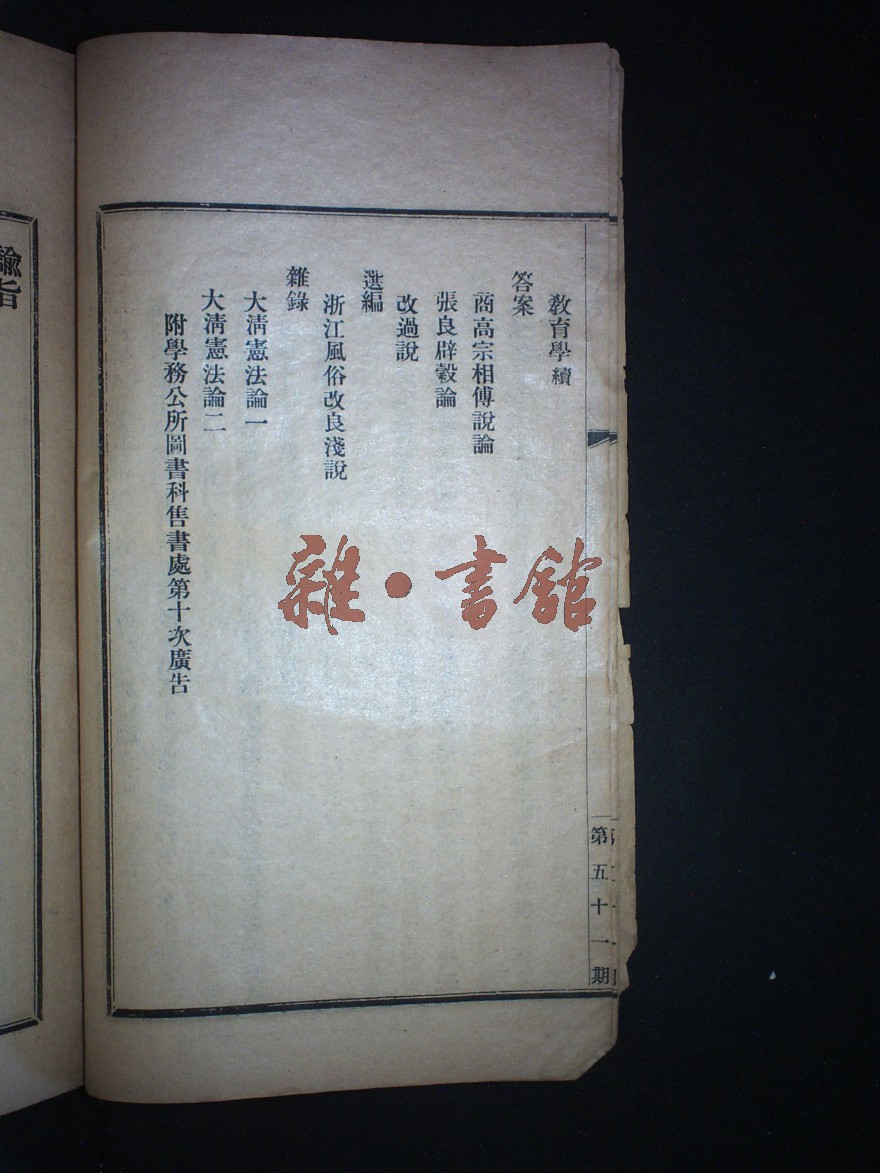 教育學續
答案
商高宗相傅說論
張良辟穀論
改過說
選編
浙江風俗改良淺說
雜錄
大淸憲法論一
大淸憲法論二
附學務公所圖書科售書處第十次廣告
第五十一期
諭旨
雜·書館